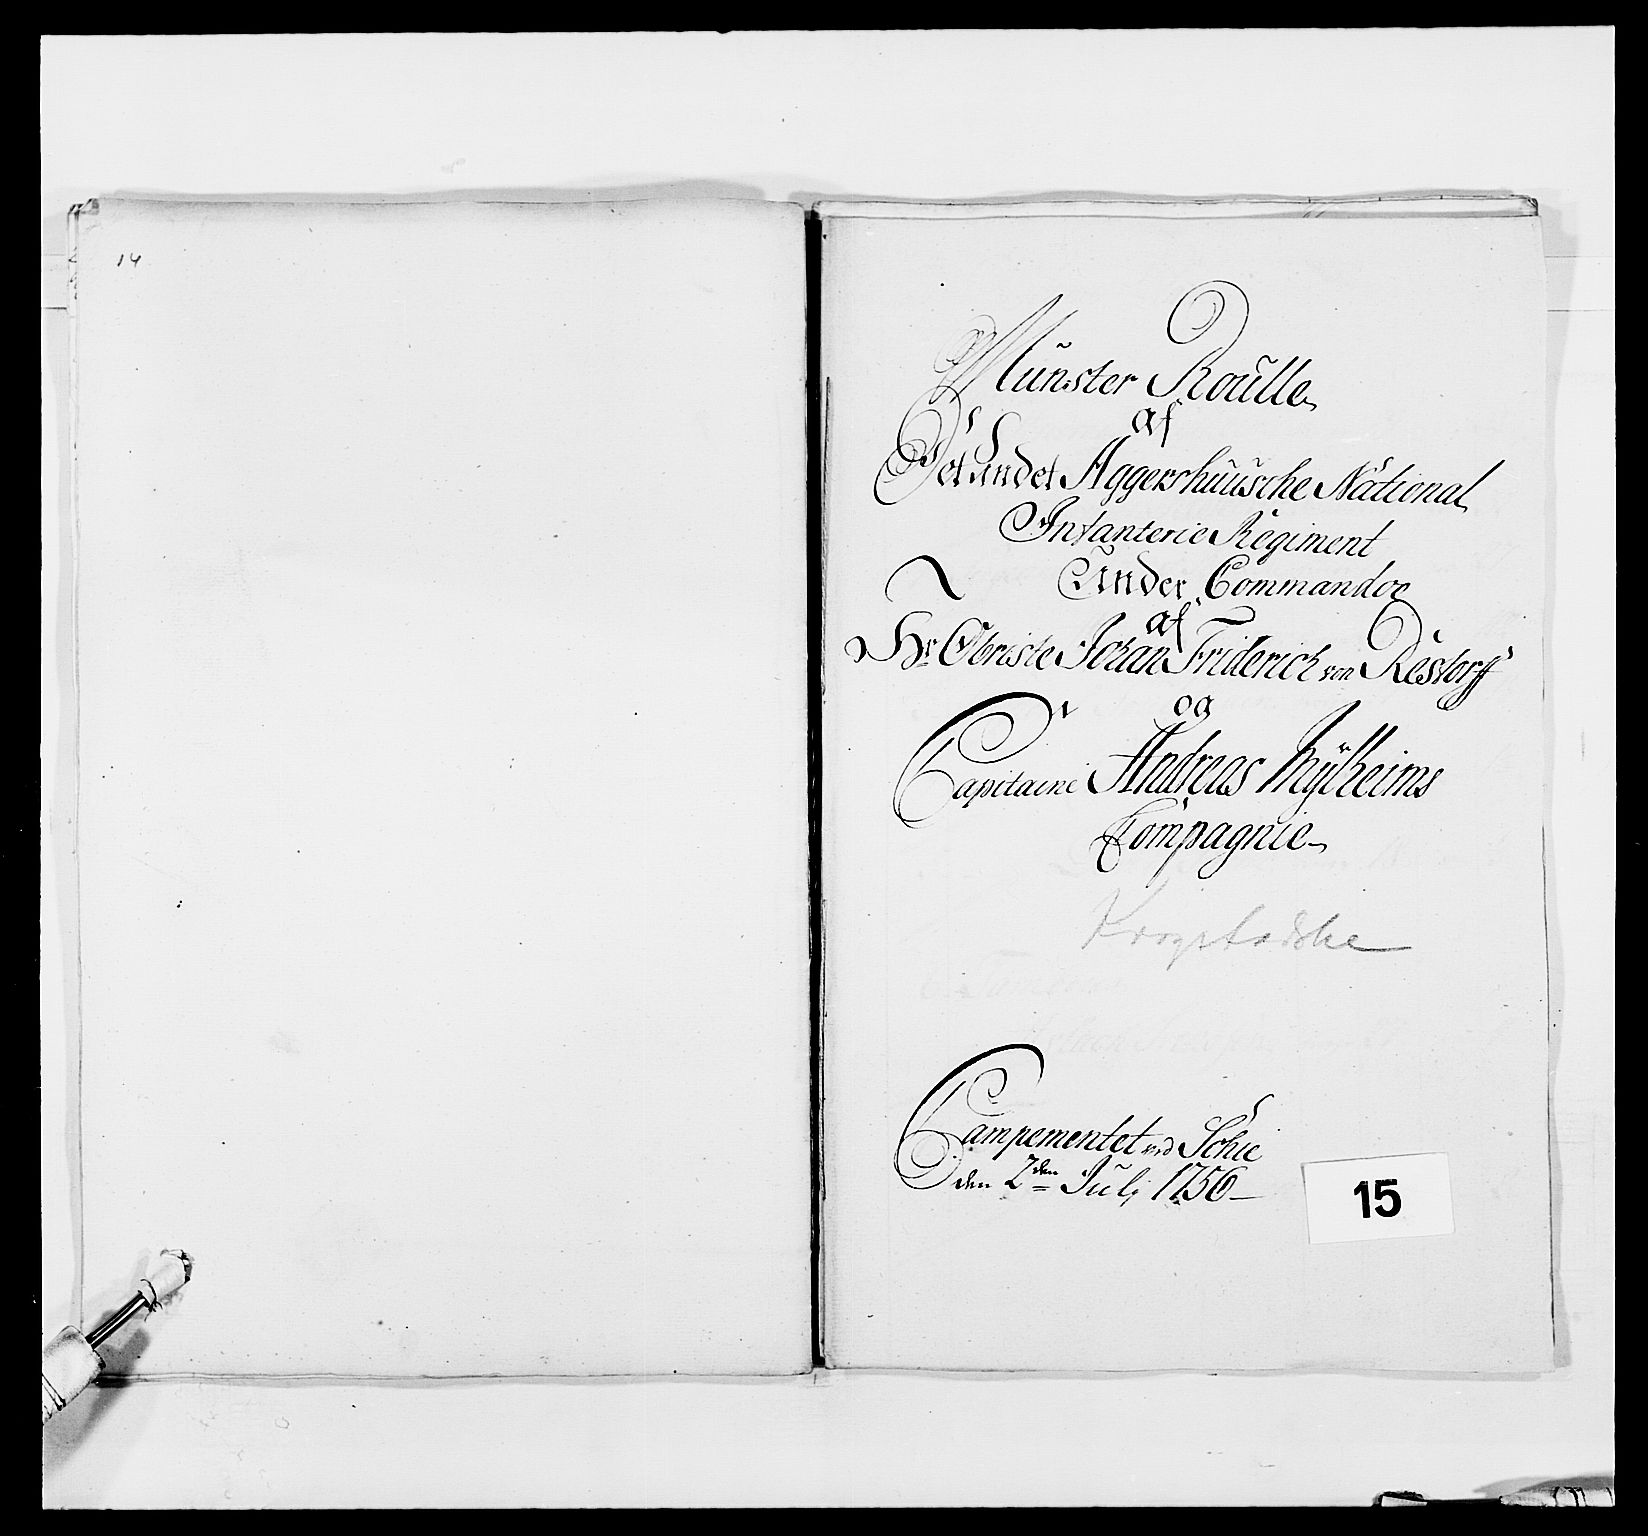 14
Münster Roulle
af
Det Andet Aggershuusche National
Infanterie Regiment
Under Commando
af
Hr Obriste Johan Friderich von Restorff
og
Capitaine Andreas Mylheims
Compagnie
Krogstadske
Campementet ved Schie
den 2den Juli 1756
15